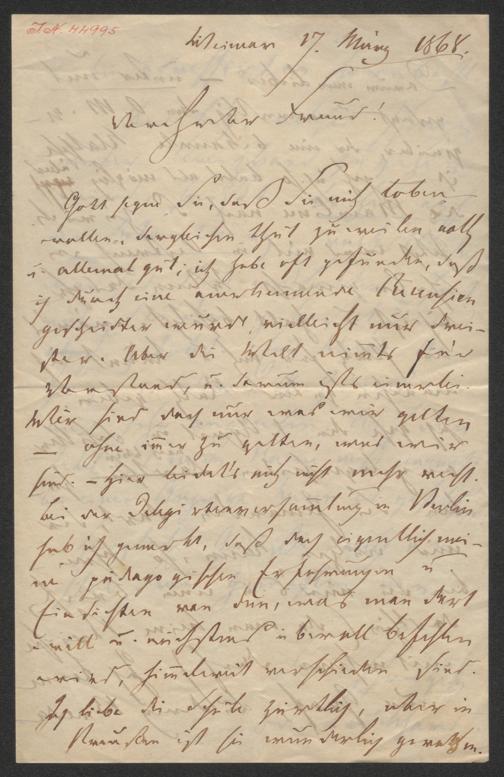 J.N. 44995
Weimar 17. März 1868.
Verehrter Freund!
Gott segne Sie, daß Sie mich loben
wollen, dergleichen thut zuweilen noth
u. allemal gut; ich habe oft gefunden, daß
ich durch eine anerkennende Recension
gescheidter wurde, vielleicht nur drei-
ster. Aber die Welt nimts für
Verstand, u. darum ists einerlei.
Wir sind doch nur was wir gelten
— ohne immer zu gelten, was wir
sind. – Hier leidet's mich nicht mehr recht.
Bei der Delegirtenversammlung in Berlin
hab ich gemerkt, daß doch eigentlich mei-
ne pädagogischen Erfahrungen u.
Einsichten von dem, was man dort
will u. nächstens überall befehlen
wird, himmelweit verschieden sind.
Ich liebe die Schule zärtlich, aber in
Preußen ist sie wunderlich gerathen.